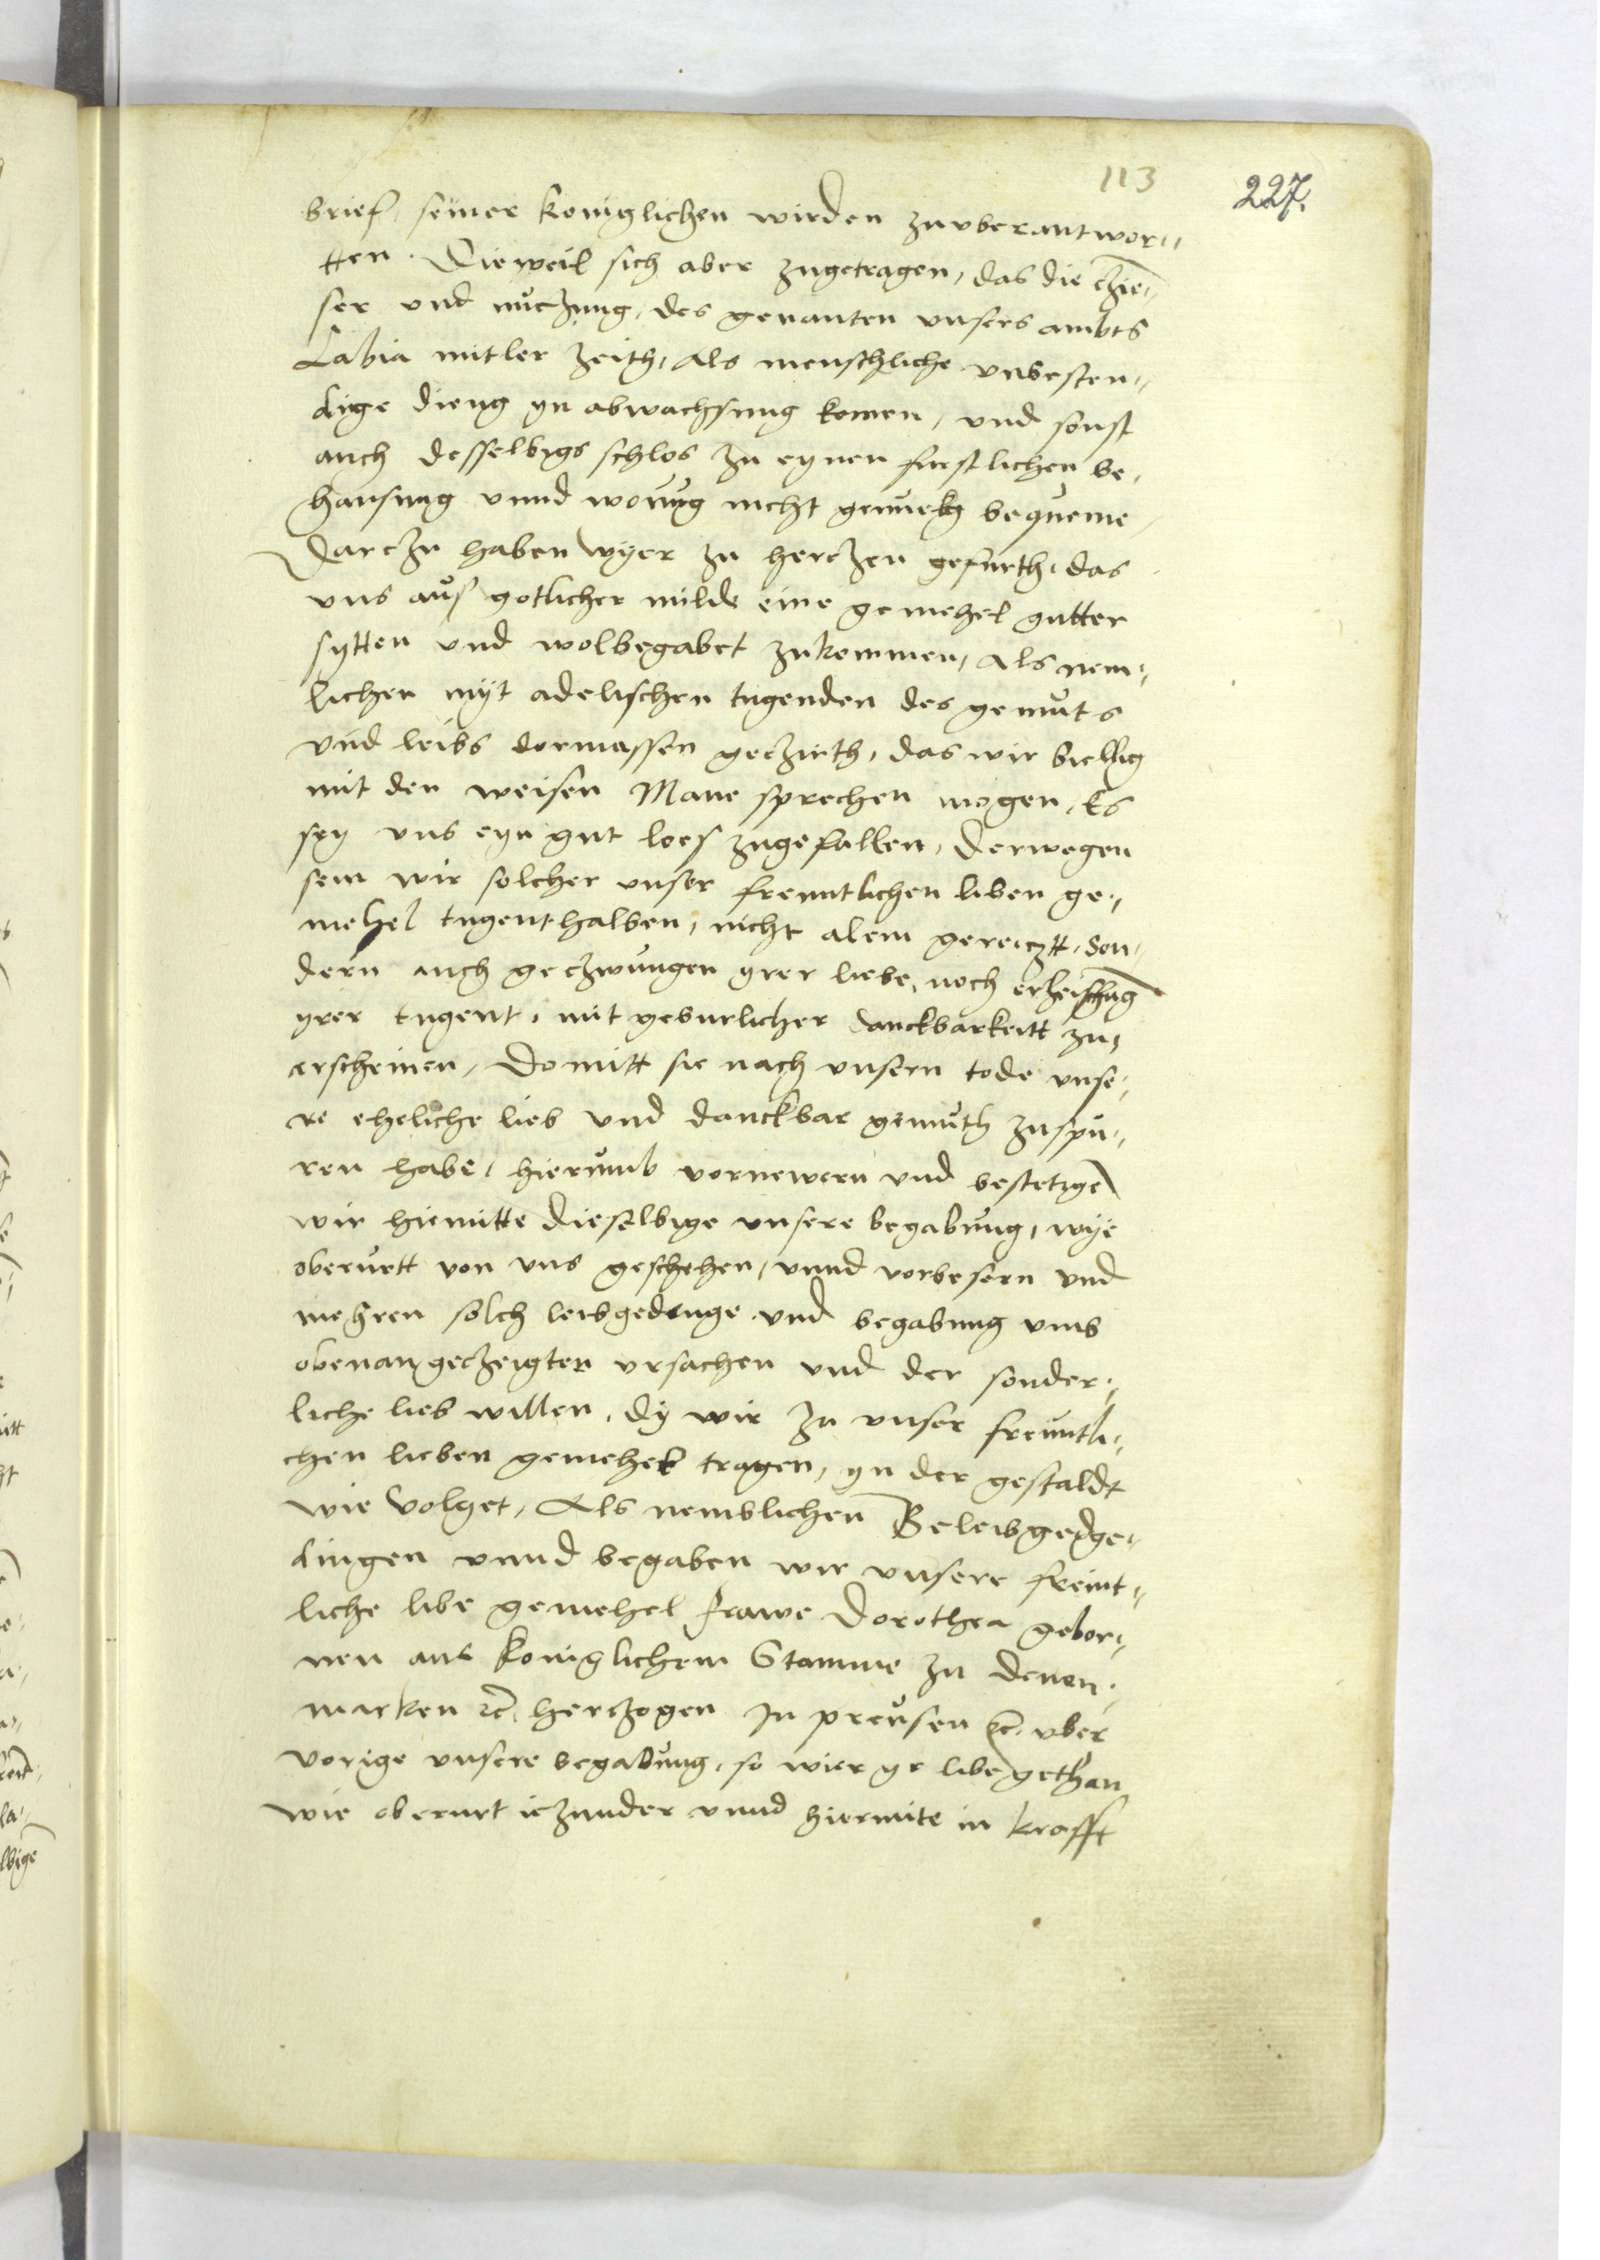 113
227.
brief, seiner koniglichen wirden zuuberantwor„
tten. Dieweil sich aber zugetragen, das die czie„
ser vnd nuczung, des genanten vnsers ambts
Labia mitler zeith, als menschliche vnbesten„
dige dieng yn abwachsung komen, vnd sonst
auch desselbigs schlos zu eynen furstlichen be„
hausung vnnd wonug nicht genuek bequeme
Darczu haben wyer zu herczen gefurth, das
vns auß gotlicher milde eine gemehel gutter
sytten vnd wolbegabet zukommen, als nem„
lichen myt adelischen tugenden des gemuts
vnd leibs dermassen geczirth, das wir billig
mit den weisen Mane sprechen mogen, Es
sey vns eyn gut loes zugefallen, Derwegen
sein wir solcher vnser freuntlichen liben ge„
mehel tugenthalben, nicht alein gereitzt, Son„
dern auch geczwungen yrer liebe, noch erheischug
yrer tugent, mit geburlicher danckbarkeitt zu„
erscheinen, Domitt sie nach vnsern tode vnse„
re eheliche lieb vnd danckbar gemuth zuspu„
ren habe, hierumb vornewern vnd bestetige
wir hiemitte dieselbige vnsere begabung, wye
oberurtt von vns geschehen, vnnd vorbesern vnd
mehren solch leibgedinge vnd begabung vmb
obenangeczeigten vrsachen vnd der sonder„
liche lieb willen, dy wir zu vnser freuntli„
chen lieben gemehel tragen, yn der gestaldt
wie volget, Als nemblichen Beleibgedge„
dingen vnnd begaben wir vnsere freunt„
liche libe gemehel frawe Dorothea gebor„
nen aus koniglichem Stamme zu denen„
marken etc. herczogen In preusen etc. vber
vorige vnsere begabung, so wier yr libe gethan
wie oberurt iczunder vnnd hiermite in krafft